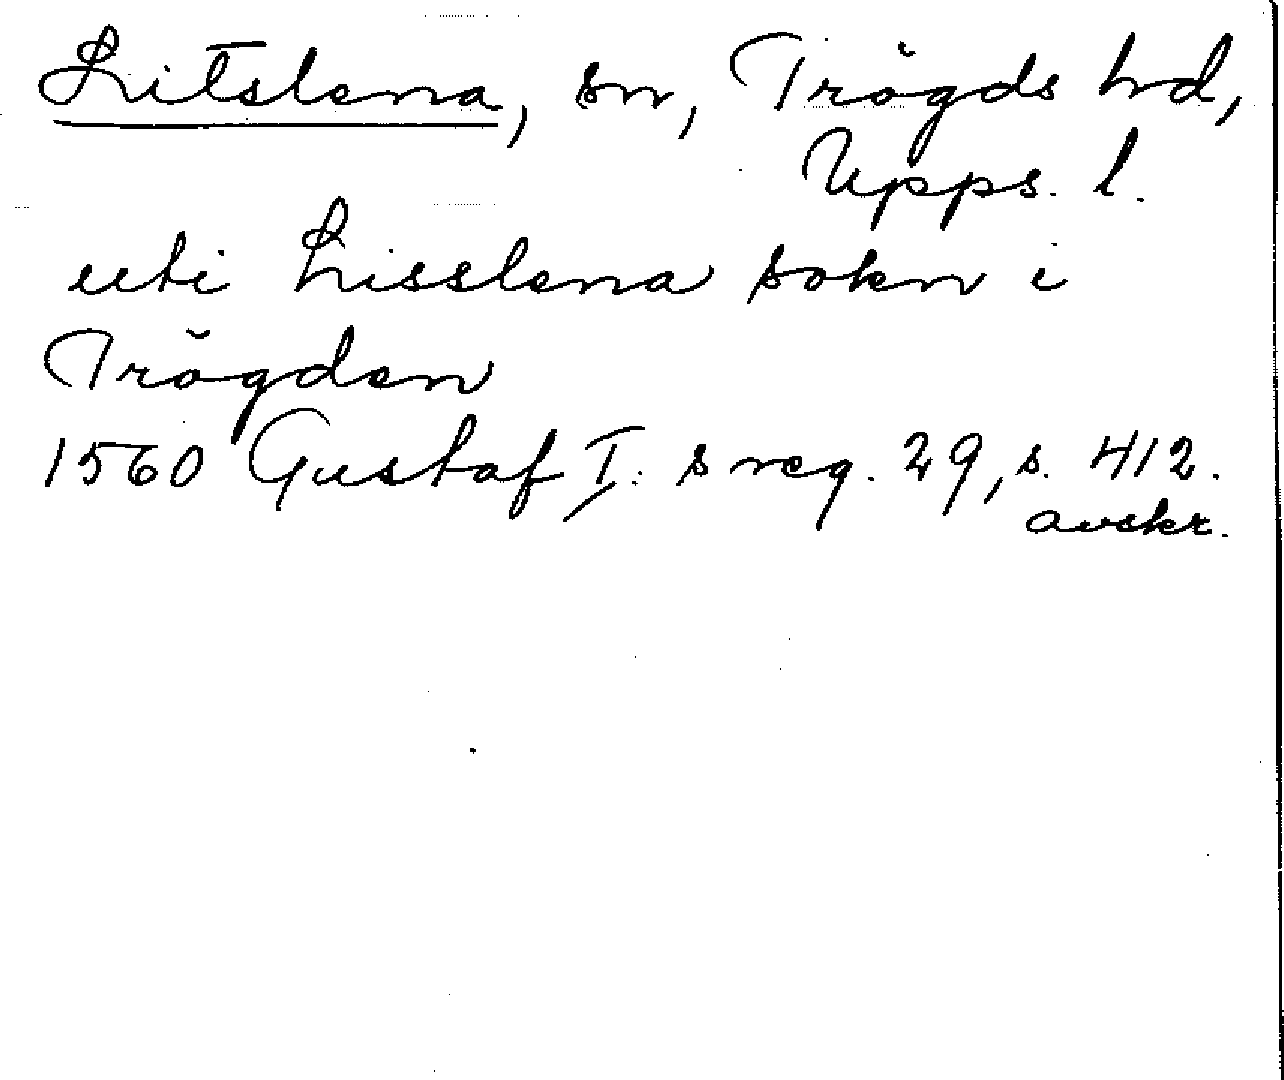 Litslena, sn, Trögds hd,
Upps. l.
uti Lisslena sokn i
Trögden
1560 Gustaf I: s reg. 29, s. 412.
avskr.